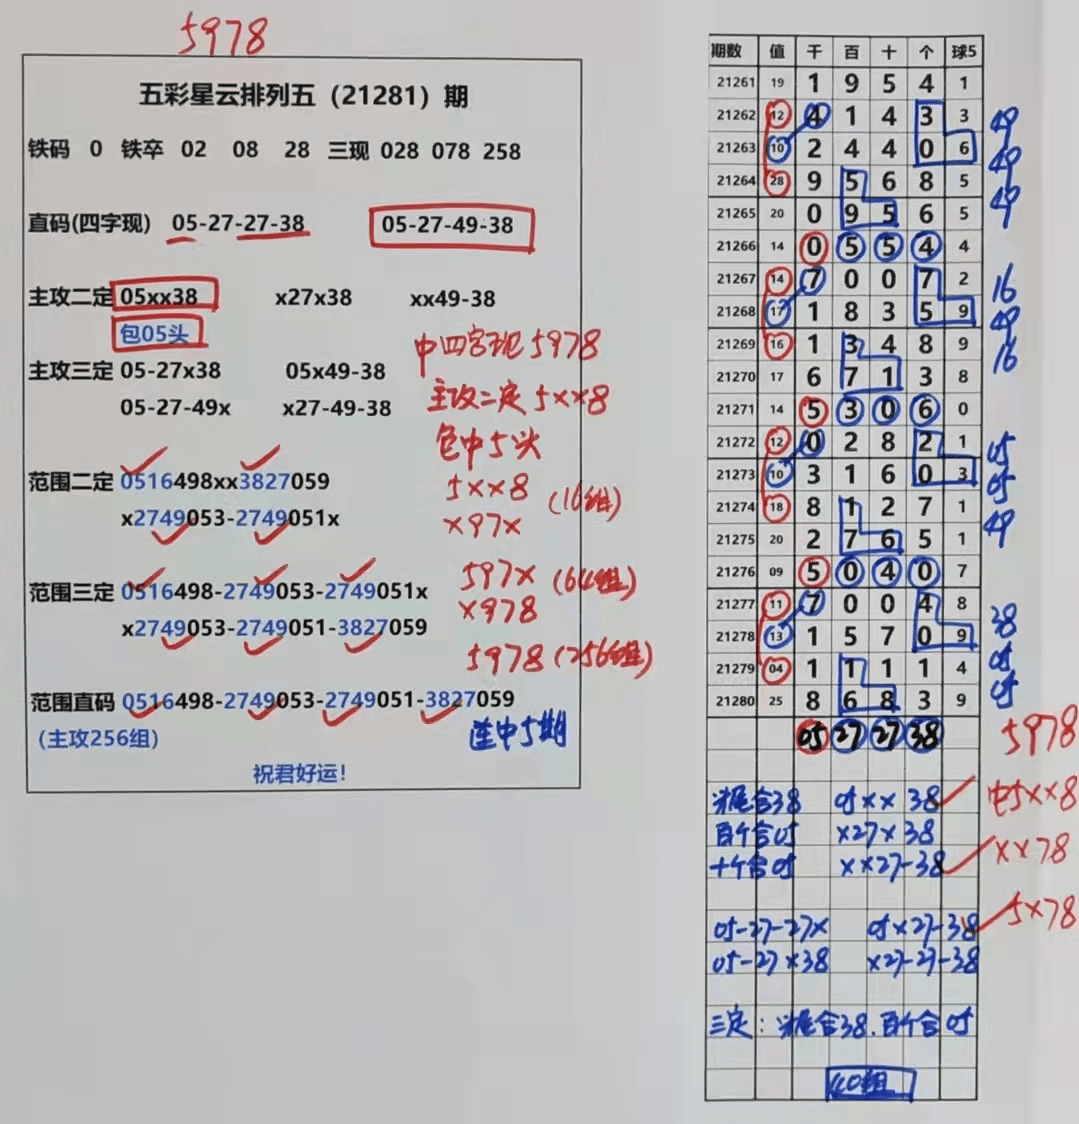 5978
五彩星云排列五（21281）期
铁码 0 铁卒 02 08 28 三现 028 078 258
直码(四字现) 05-27-27-38 05-27-49-38
主攻二定 05xx38 x27x38 xx49-38
包05头
中四字现5978
主攻三定 05-27x38 05x49-38
主攻二定5xx8
05-27-49x x27-49-38
包中5头
范围二定 0516498xx3827059
5xx8 (16组)
x2749053-2749051x
x97x
范围三定 0516498-2749053-2749051x
597x (64组)
x978
x2749053-2749051-3827059
5978 (256组)
范围直码 0516498-2749053-2749051-3827059
(主攻256组) 连中5期
祝君好运!
期数 值 千 百 十 个 球5
21261 19 1 9 5 4 1
21262 12 4 1 4 3 3 49
21263 10 2 4 4 0 6 49
21264 28 9 5 6 8 5 49
21265 20 0 9 5 6 5
21266 14 0 5 5 4 4
21267 14 7 0 0 7 2 16
21268 17 1 8 3 5 9 49
21269 16 1 3 4 8 9 16
21270 17 6 7 1 3 8
21271 14 5 3 0 6 0
21272 12 0 2 8 2 1 05
21273 10 3 1 6 0 3 05
21274 18 8 1 2 7 1 49
21275 20 2 7 6 5 1
21276 09 5 0 4 0 7
21277 11 7 0 0 4 8 38
21278 13 1 5 7 0 9 05
21279 04 1 1 1 1 4 05
21280 25 8 6 8 3 9
05 27 27 38 5978
头尾合38 05xx38 中5xx8
百个合05 x27x38
十个合05 xx27-38 xx78
05-27-27x 05x27-38 5x78
05-27x38 x27-27-38
三定：头尾合38.百个合05
40组